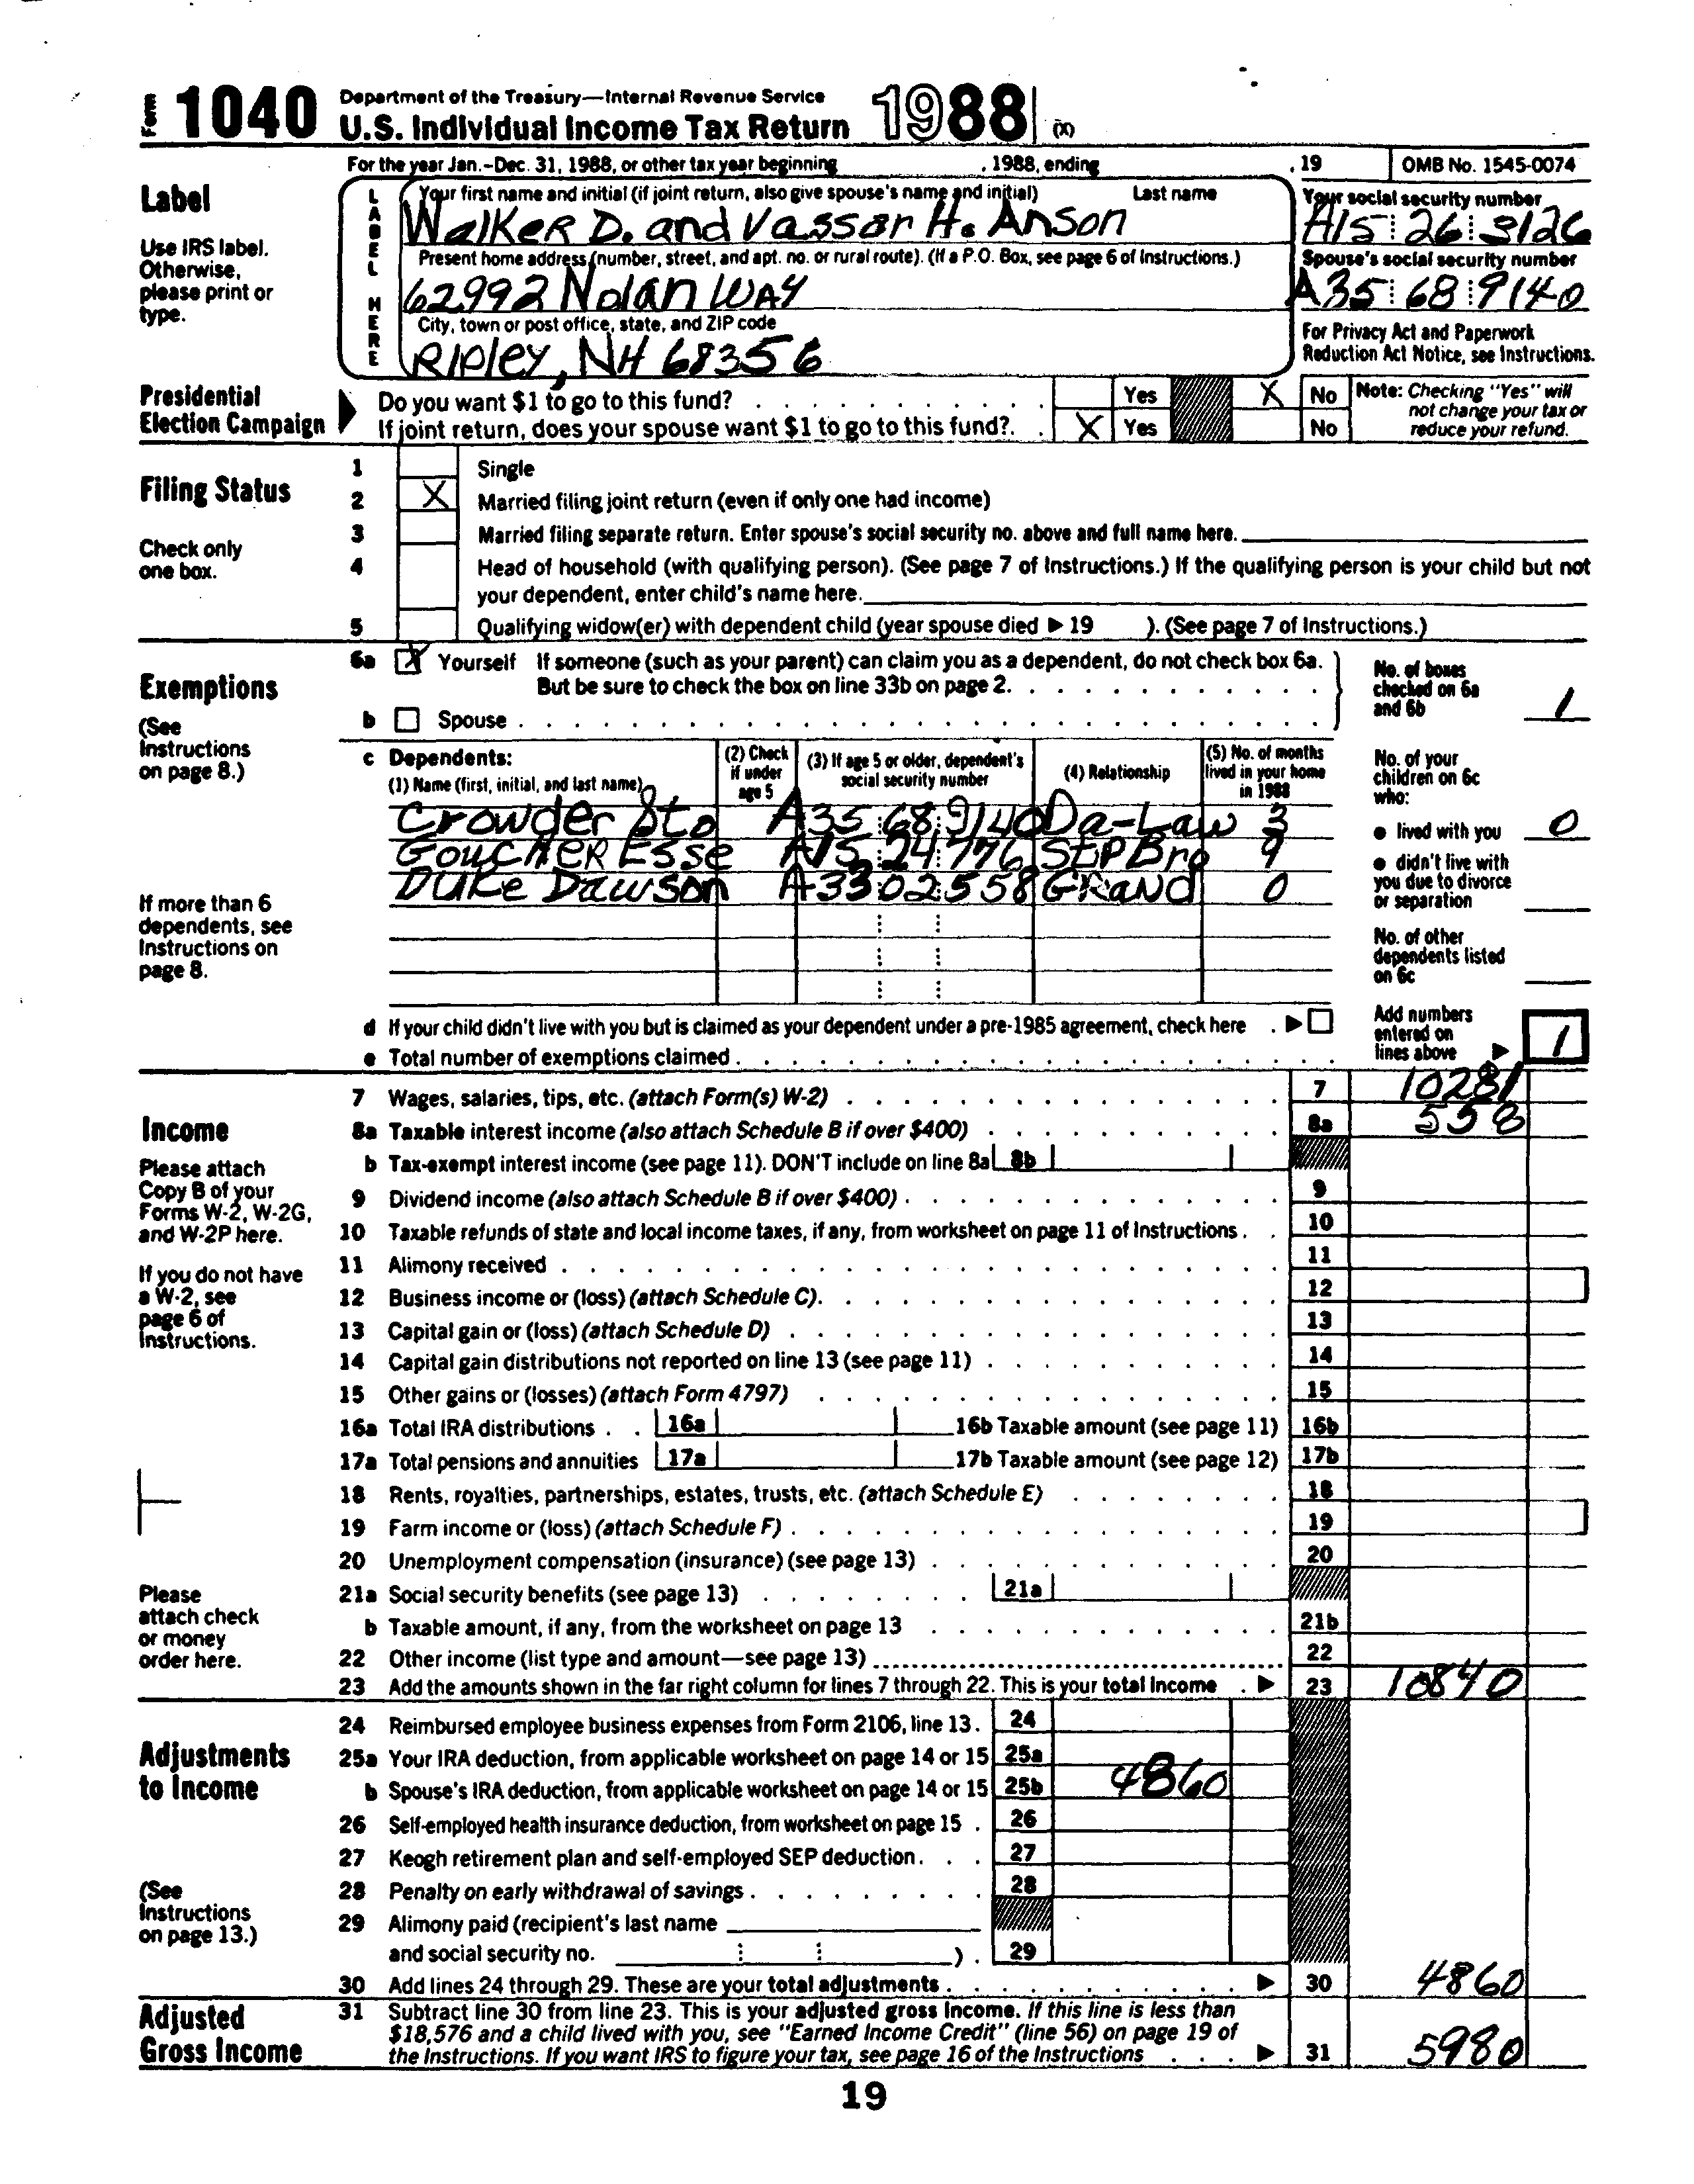 Form 1040 Department of the Treasury—Internal Revenue Service
U.S. Individual Income Tax Return 1988 (X)
For the year Jan.-Dec. 31, 1988, or other tax year beginning , 1988, ending , 19 OMB No. 1545-0074
Label
Use IRS label.
Otherwise,
please print or
type.
LABEL HERE
Your first name and initial (if joint return, also give spouse's name and initial) Last name
Walker D. and Vassar H. Anson
Your social security number
A15 26 3126
Present home address (number, street, and apt. no. or rural route). (If a P.O. Box, see page 6 of Instructions.)
62992 Nolan Way
Spouse's social security number
A35 68 9140
City, town or post office, state, and ZIP code
Ripley, NH 68356
For Privacy Act and Paperwork
Reduction Act Notice, see Instructions.
Presidential
Election Campaign
Do you want $1 to go to this fund? Yes X No
If joint return, does your spouse want $1 to go to this fund? X Yes No
Note: Checking "Yes" will
not change your tax or
reduce your refund.
Filing Status
Check only
one box.
1 Single
2 X Married filing joint return (even if only one had income)
3 Married filing separate return. Enter spouse's social security no. above and full name here.
4 Head of household (with qualifying person). (See page 7 of Instructions.) If the qualifying person is your child but not
your dependent, enter child's name here.
5 Qualifying widow(er) with dependent child (year spouse died ▶ 19 ). (See page 7 of Instructions.)
Exemptions
(See
Instructions
on page 8.)
6a X Yourself If someone (such as your parent) can claim you as a dependent, do not check box 6a.
But be sure to check the box on line 33b on page 2.
b Spouse
No. of boxes
checked on 6a
and 6b 1
c Dependents:
(1) Name (first, initial, and last name)
(2) Check
if under
age 5
(3) If age 5 or older, dependent's
social security number
(4) Relationship
(5) No. of months
lived in your home
in 1988
Crowder Sto A35 68 9140 Da-Law 3
Goucher Esse A15 24 776 StepBro 9
Duke Dawson A33 02 558 Grand 0
If more than 6
dependents, see
Instructions on
page 8.
No. of your
children on 6c
who:
● lived with you 0
● didn't live with
you due to divorce
or separation
No. of other
dependents listed
on 6c
d If your child didn't live with you but is claimed as your dependent under a pre-1985 agreement, check here ▶
e Total number of exemptions claimed
Add numbers
entered on
lines above ▶ 1
Income
Please attach
Copy B of your
Forms W-2, W-2G,
and W-2P here.
If you do not have
a W-2, see
page 6 of
Instructions.
Please
attach check
or money
order here.
7 Wages, salaries, tips, etc. (attach Form(s) W-2) 7 10281
8a Taxable interest income (also attach Schedule B if over $400) 8a 558
b Tax-exempt interest income (see page 11). DON'T include on line 8a 8b
9 Dividend income (also attach Schedule B if over $400) 9
10 Taxable refunds of state and local income taxes, if any, from worksheet on page 11 of Instructions 10
11 Alimony received 11
12 Business income or (loss) (attach Schedule C) 12
13 Capital gain or (loss) (attach Schedule D) 13
14 Capital gain distributions not reported on line 13 (see page 11) 14
15 Other gains or (losses) (attach Form 4797) 15
16a Total IRA distributions 16a 16b Taxable amount (see page 11) 16b
17a Total pensions and annuities 17a 17b Taxable amount (see page 12) 17b
18 Rents, royalties, partnerships, estates, trusts, etc. (attach Schedule E) 18
19 Farm income or (loss) (attach Schedule F) 19
20 Unemployment compensation (insurance) (see page 13) 20
21a Social security benefits (see page 13) 21a
b Taxable amount, if any, from the worksheet on page 13 21b
22 Other income (list type and amount—see page 13) 22
23 Add the amounts shown in the far right column for lines 7 through 22. This is your total income ▶ 23 10840
Adjustments
to Income
(See
Instructions
on page 13.)
24 Reimbursed employee business expenses from Form 2106, line 13. 24
25a Your IRA deduction, from applicable worksheet on page 14 or 15 25a
b Spouse's IRA deduction, from applicable worksheet on page 14 or 15 25b 4860
26 Self-employed health insurance deduction, from worksheet on page 15 26
27 Keogh retirement plan and self-employed SEP deduction 27
28 Penalty on early withdrawal of savings 28
29 Alimony paid (recipient's last name
and social security no. ) 29
30 Add lines 24 through 29. These are your total adjustments ▶ 30 4860
Adjusted
Gross Income
31 Subtract line 30 from line 23. This is your adjusted gross income. If this line is less than
$18,576 and a child lived with you, see "Earned Income Credit" (line 56) on page 19 of
the Instructions. If you want IRS to figure your tax, see page 16 of the Instructions ▶ 31 5980
19